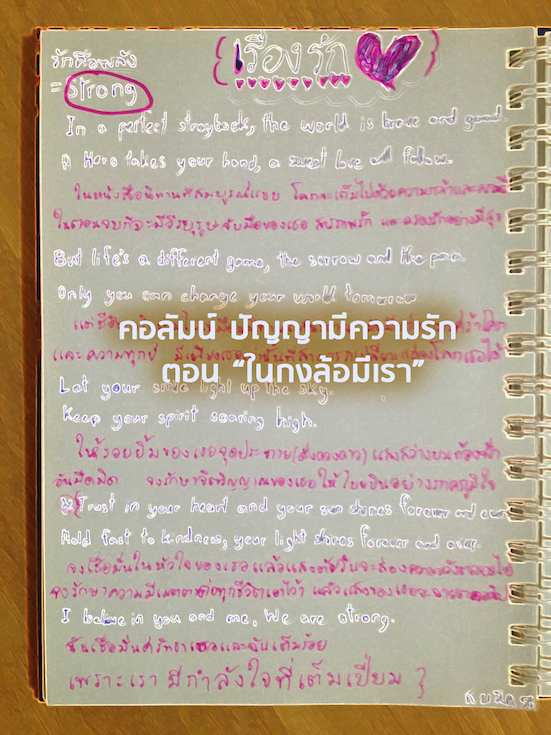 {เรื่องรัก}
รักคือพลัง
= strong
In a perfect storybook, the world is brave and good
A Hero takes your hand, a sweet love will follow.
ในหนังสือนิทานที่สมบูรณ์แบบ โลกจะเต็มไปด้วยความกล้าและ
ในตอนจบก็จะมีวีรบุรุษจับมือของเธอ
But life's a different game, the sorrow and the pain.
Only you can change your world tomorrow
คอลัมน์ ปัญญามีความรัก
ตอน “ในกงล้อมีเรา”
และความทุกข์
Let your smile light up the sky.
Keep your spirit soaring high.
ให้รอยยิ้มของเธอจุดประกาย(ดั่งดวงดาว) แสงสว่างบนท้องฟ้า
อันมืดมิด จงรักษาจิตวิญญาณของเธอให้โบยบินอย่างภาคภูมิใจ
Trust in your heart and your sun shines forever and ever
Hold fast to kindness, your light shines forever and ever.
จงเชื่อมั่นในหัวใจของเธอ แล้วแสงอาทิตย์
จงรักษาความมีเมตตาต่อทุกชีวิตเอาไว้ แล้วแสงของเธอจะ
I believe in you and me, We are strong.
ฉันเชื่อมั่นศรัทธาเธอและฉันเต็มร้อย
เพราะเรามีกำลังใจที่เต็มเปี่ยม }